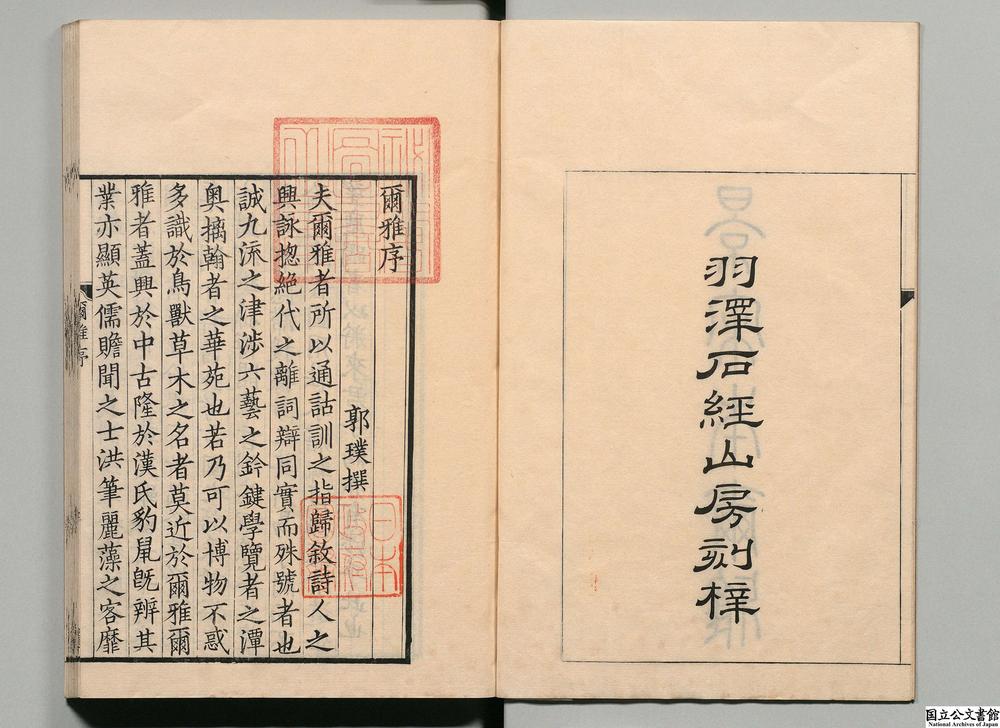 羽澤石經山房刻梓
爾雅序
郭璞撰
夫爾雅者所以通詁訓之指歸敘詩人之
興詠揔絶代之離詞辯同實而殊號者也
誠九流之津涉六藝之鈐鍵學覽者之潭
奥摛翰者之華苑也若乃可以博物不惑
多識於鳥獸草木之名者莫近於爾雅爾
雅者蓋興於中古隆於漢氏豹鼠旣辨其
業亦顯英儒贍聞之士洪筆麗藻之客靡
爾雅序
日本
国立公文書館
National Archives of Japan